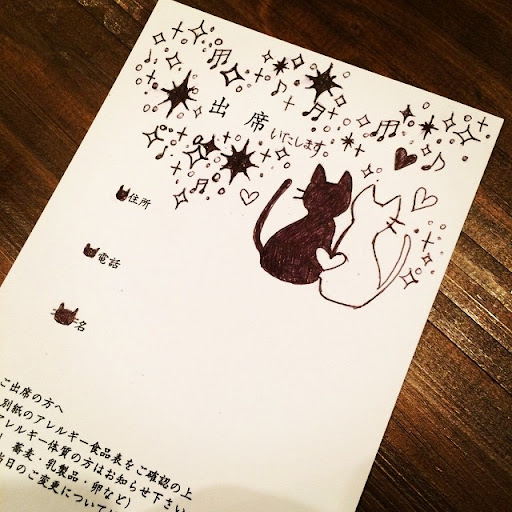 出席いたします。
住所
電話
名
ご出席の方へ
別紙のアレルギー食品表をご確認の上
アレルギー体質の方はお知らせ下さい
蕎麦・乳製品・卵など)
当日のご変更につい